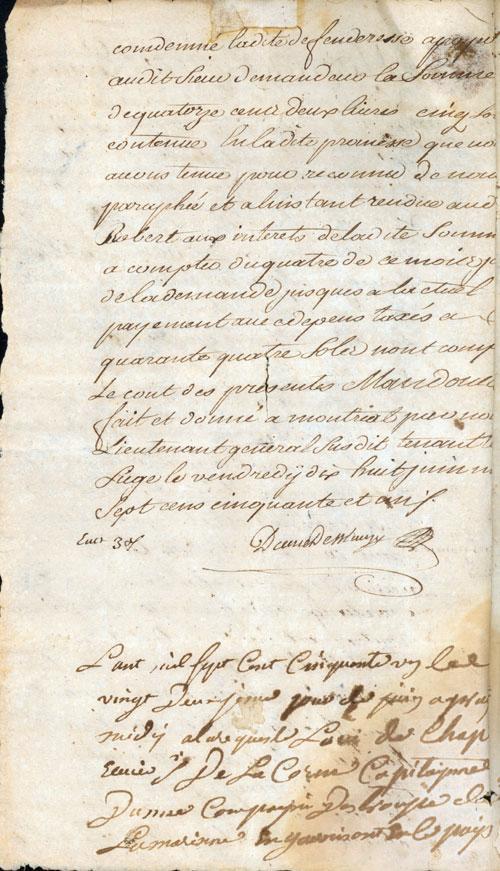 comdemné ladite defenderesse a payer
audit Sieur demandeur la Somme
de quatorze cent deux livres cinq so
contenue En ladite promesse que no
avons tenue pour reconnue de nou
paraphée et a linstant rendue aud
Robert aux interets de ladite Somm
a compter du quatre de ce mois j
de la demande jusques a lactuel
payement avec depens taxés a
quarante quatre Soles nont comp
Le cout des presentes Mandons
fait et donné a montreal par no
Lieutenant general Susdit tenant
Siege le vendredy dix huit juin m
Sept cens cinquante et un
Danré De Blanzy
Lant mil sept Cent Cinquante un le
vingt Deuxieme jour de juin apres
midy a la requeste Louis de Chap
Ecuier Sr De La Corne Capitaine
Dune Compagnie Des troupes de
La marinne En garnisont En Ce pays